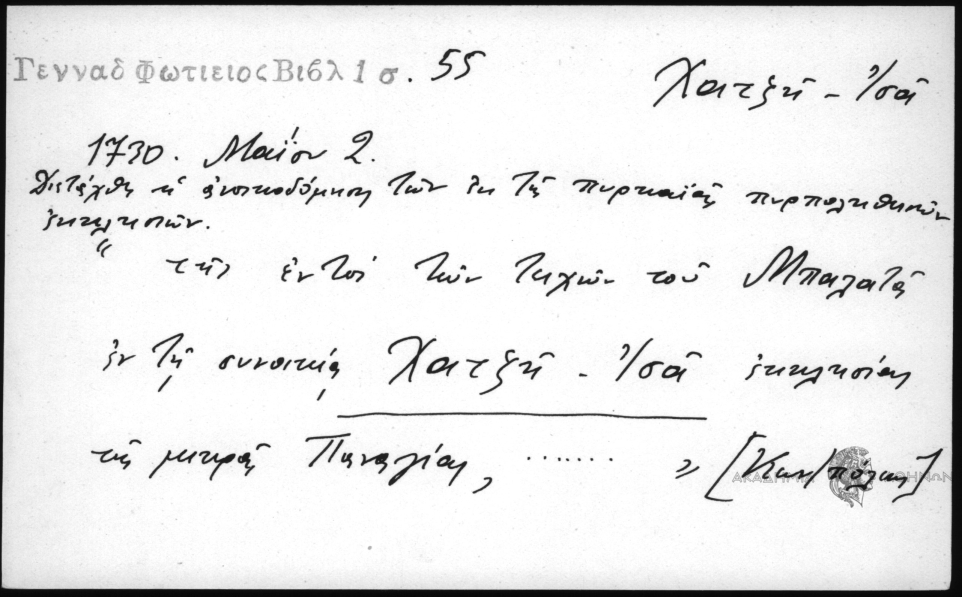 Γενναδ Φωτιειος Βιβλ 1 σ. 55
Χατζῆ - Ἰσᾶ
1730. Μαΐου 2.
Διετάχθη ἡ ἀνοικοδόμησις τῶν ἐκ τῆς πυρκαϊᾶς πυρποληθεισῶν
ἐκκλησιῶν.
“ τῆς ἐντὸς τῶν τειχῶν τοῦ Μπαλατᾶ
ἐν τῇ συνοικίᾳ Χατζῆ - Ἰσᾶ ἐκκλησίας
τῆς μικρᾶς Παναγίας, ....... „ [Κων/πόλεως]
ΑΚΑΔΗΜΙΑ ΑΘΗΝΩΝ